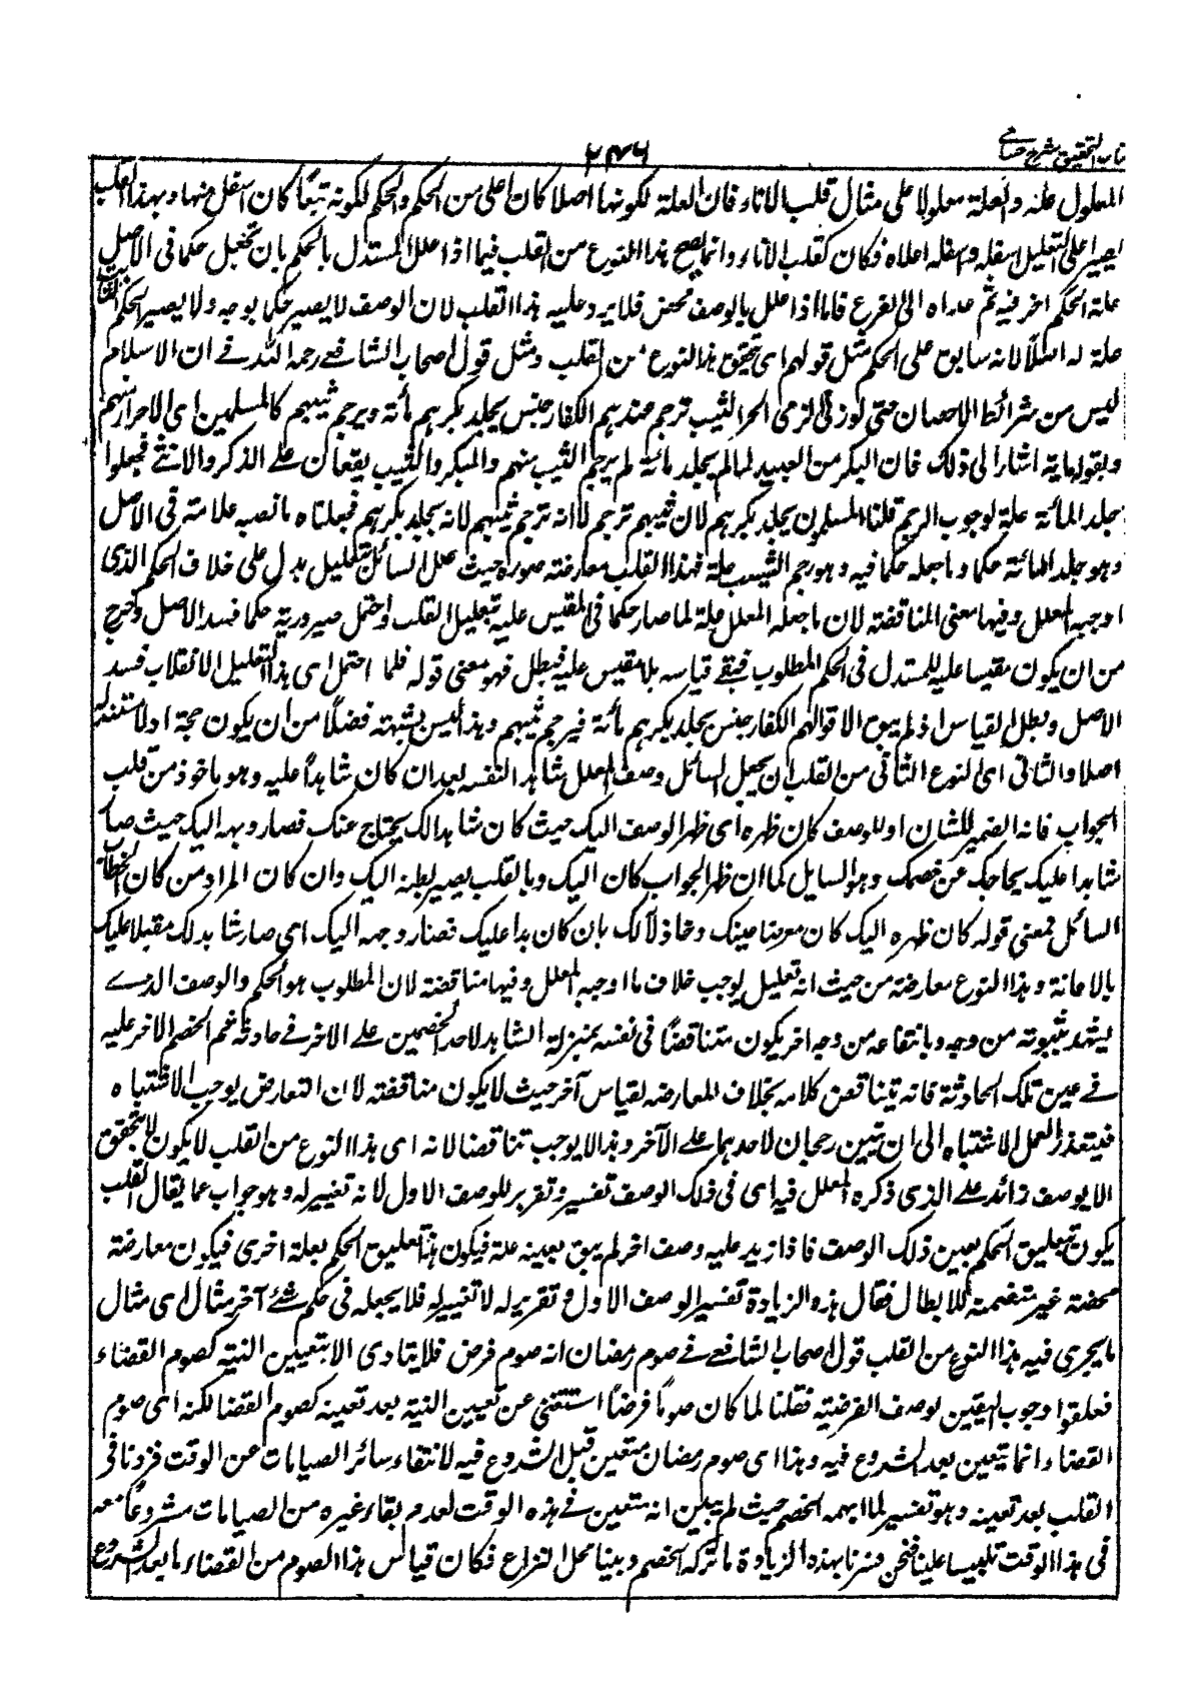 كتاب التحقيق شرح حسامي
٢٣٦
المعلول علة والعلة معلولا على مثال قلب الاناء فان العلة لكونها اصلا كان اعلى من الحكم والحكم لكونه تبعا كان اسفل منها وبهذا القلب
يصير اعلى التعليل اسفله واسفله اعلاه فكان كقلب الاناء وانما يصح هذا النوع من القلب فيما اذا علل المستدل بالحكم بان يجعل حكما فى الاصل
علة لحكم اخر فيه ثم عداه الى الفرع فاما اذا علل بالوصف محض فلا يرد عليه هذا القلب لان الوصف لا يصير حكما بوجه ولا يصير الحكم
علة له اصلا لانه سابق على الحكم مثل قولهم اى تحقق هذا النوع من القلب مثل قول اصحاب الشافعے رحمه الله فے ان الاسلام
ليس من شرائط الاحصان حتى لو زنى الذمى الحر الثيب يرجم عندهم الكفار جنس يجلد بكرهم مائة ويرجم ثيبهم كالمسلمين اى الاحرار منهم
وبقوله مائة اشار الى ذلك فان البكر من العبيد لما لم يجلد مائة لم يرجم الثيب منهم والبكر والثيب يقعان علے الذكر والانثے فجعلوا
جلد المائة علة لوجوب الرجم قلنا المسلمون يجلد بكرهم لان ثيبهم يرجم لا انه يرجم ثيبهم لانه يجلد بكرهم فجعلنا ما نصبه علامة فى الاصل
وهو جلد المائة حكما وما جعله حكما فيه وهو رجم الثيب علة فهذا القلب معارضة صورة حيث علل السائل بتعليل يدل على خلاف الحكم الذى
اوجبه المعلل وفيها معنى المناقضة لان ما جعله المعلل علة لما صار حكما فى المقيس عليه بتعليل القلب واحتمل صيرورية حكما فسد الاصل وخرج
من ان يكون مقيسا عليه للمستدل فى الحكم المطلوب فبقے قياسه بلا مقيس عليه فبطل فهو معنى قوله فلما احتمل اى هذا التعليل الانقلاب فسد
الاصل وبطل القياس اذ لم يبق الا قولهم الكفار جنس يجلد بكرهم مائة فيرجم ثيبهم وهذا ليس بشبهة فضلا من ان يكون حجة اولا
اصلا والثانى اى النوع الثانى من القلب ان يجعل السائل وصف المعلل شاهدا لنفسه بعد ان كان شاهدا عليه وهو ماخوذ من قلب
الجراب فانه الضمير للشان او للوصف كان ظهره اى ظهر الوصف اليك حيث كان شاهدا لك يحتاج عنك فصار وجهه اليك حيث صار
شاهدا عليك يحاجك عن خصمك وهو السايل كما ان ظهر الجراب كان اليك وبالقلب يصير بطنه اليك وان كان المراد من كان الخطاب
السائل فمعنى قوله كان ظهره اليك كان معرضا عينك وخاذلا لك بان كان شاهدا عليك فصار وجهه اليك اى صار شاهدا لك مقبلا عليك
بالاعانة وهذا النوع معارضة من حيث انه تعليل يوجب خلاف ما اوجبه المعلل وفيها مناقضة لان المطلوب هو الحكم والوصف الذے
يشهد بثبوته من وجه وبانتفاءه من وجه اخر يكون متناقضا فى نفسه بمنزلة الشاهد لاحد الخصمين علے الاخر فے حادثة ثم للخصم الاخر عليه
فے عين تلك الحادثة فانه يتناقض كلامه بخلاف المعارضه لقياس آخر حيث لا يكون مناقضة لان التعارض يوجب الاشتباه
فيتعذر العمل للاشتباه الى ان يتبين رجحان لاحدهما علے الآخر وهذا لا يوجب تناقضا الا انه اى هذا النوع من القلب لا يكون لا يتحقق
الا بوصف زائد علے الذى ذكره المعلل فيه اى فى ذلك الوصف تفسير وتقرير للوصف الاول لا انه تغيير له وهو جواب عما يقال القلب
يكون بتعليق الحكم بعين ذلك الوصف فاذا زيد عليه وصف اخر لم يبق بعينه علة فيكون هذا تعليق الحكم بعلة اخرى فيكون معارضة
محضة غير متضمنة للابطال فقال هذه الزيادة تفسير الوصف الاول وتقرير له لا تغيير له فلا يجعله فى حكم شئ آخر مثال اى مثال
ما يجرى فيه هذا النوع من القلب قول اصحاب الشافعے فے صوم رمضان انه صوم فرض فلا يتادى الا بتعيين النية كصوم القضاء
فعلقوا وجوب التعيين بوصف الفرضية فقلنا لما كان صوما فرضا استغنى عن تعيين النية بعد تعينه كصوم القضا لكنه اى صوم
القضاء انما يتعين بعد الشروع فيه وهذا اى صوم رمضان متعين قبل الشروع فيه لانتفاء سائر الصيامات عن الوقت فزدنا فى
القلب بعد تعينه وهو تفسير لما ابهمه الخصم حيث لم يبين انه متعين فے هذه الوقت لعدم بقاء غيره من الصيامات مشروعا معه
فى هذا الوقت تلبيسا علينا فنحن فسرنا بهذه الزيادة ما تركه الخصم وبينا محل النزاع فكان قياس هذا الصوم من القضاء ما بعد الشروع